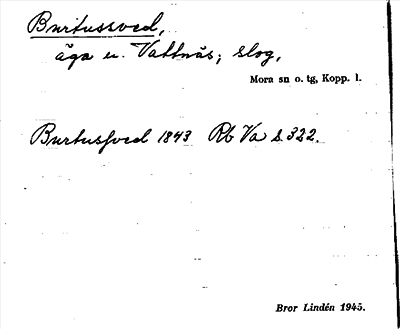 Burtussved,
äga u. Vattnäs; slog,
Mora sn o. tg, Kopp. l.
Burtusſved 1843 Rb Va s. 322.
Bror Lindén 1945.